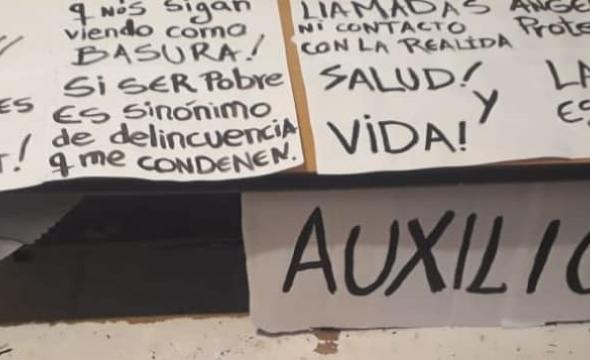 q NOS Sigan
viendo como
BASURA!
Si SER Pobre
ES Sinónimo
de delincuencia
q me CONDENEN.
LLAMADAS
Ni CONTACTO
CON LA REALIDA
SALUD!
Y
VIDA!
LA
ES
AUXILIO